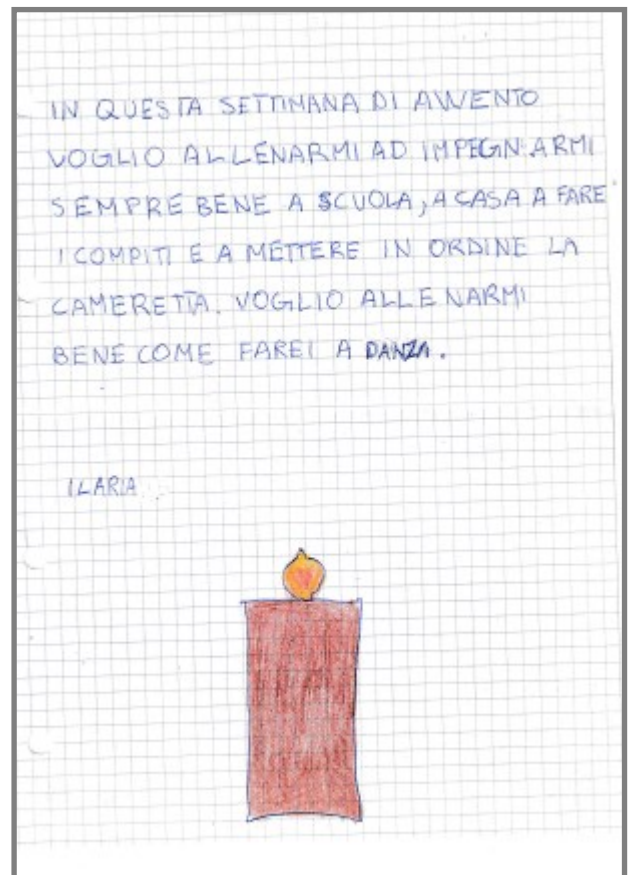 IN QUESTA SETTIMANA DI AVVENTO
VOGLIO ALLENARMI AD IMPEGNARMI
SEMPRE BENE A SCUOLA, A CASA A FARE
I COMPITI E A METTERE IN ORDINE LA
CAMERETTA. VOGLIO ALLENARMI
BENE COME FAREI A DANZA.
ILARIA